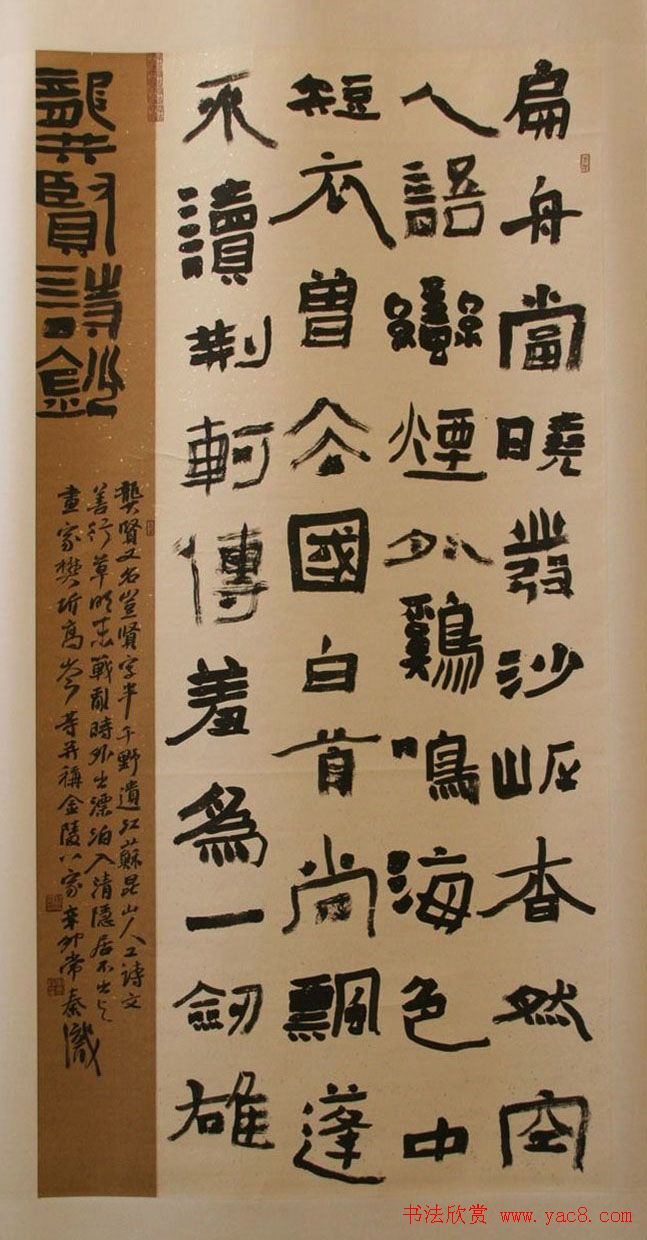 扁舟當曉發沙岸杳然空
人語蠻煙外鷄鳴海色中
短衣曾去國白首尚飄蓬
不讀荊軻傳羞為一劍雄
龔賢詩鈔
龔賢又名豈賢字半千野遺江蘇昆山人工詩文
善行草明末戰亂時外出漂泊入清隱居不出与
畫家樊圻高岑等并稱金陵八家辛卯常秦識
书法欣赏 www.yac8.com